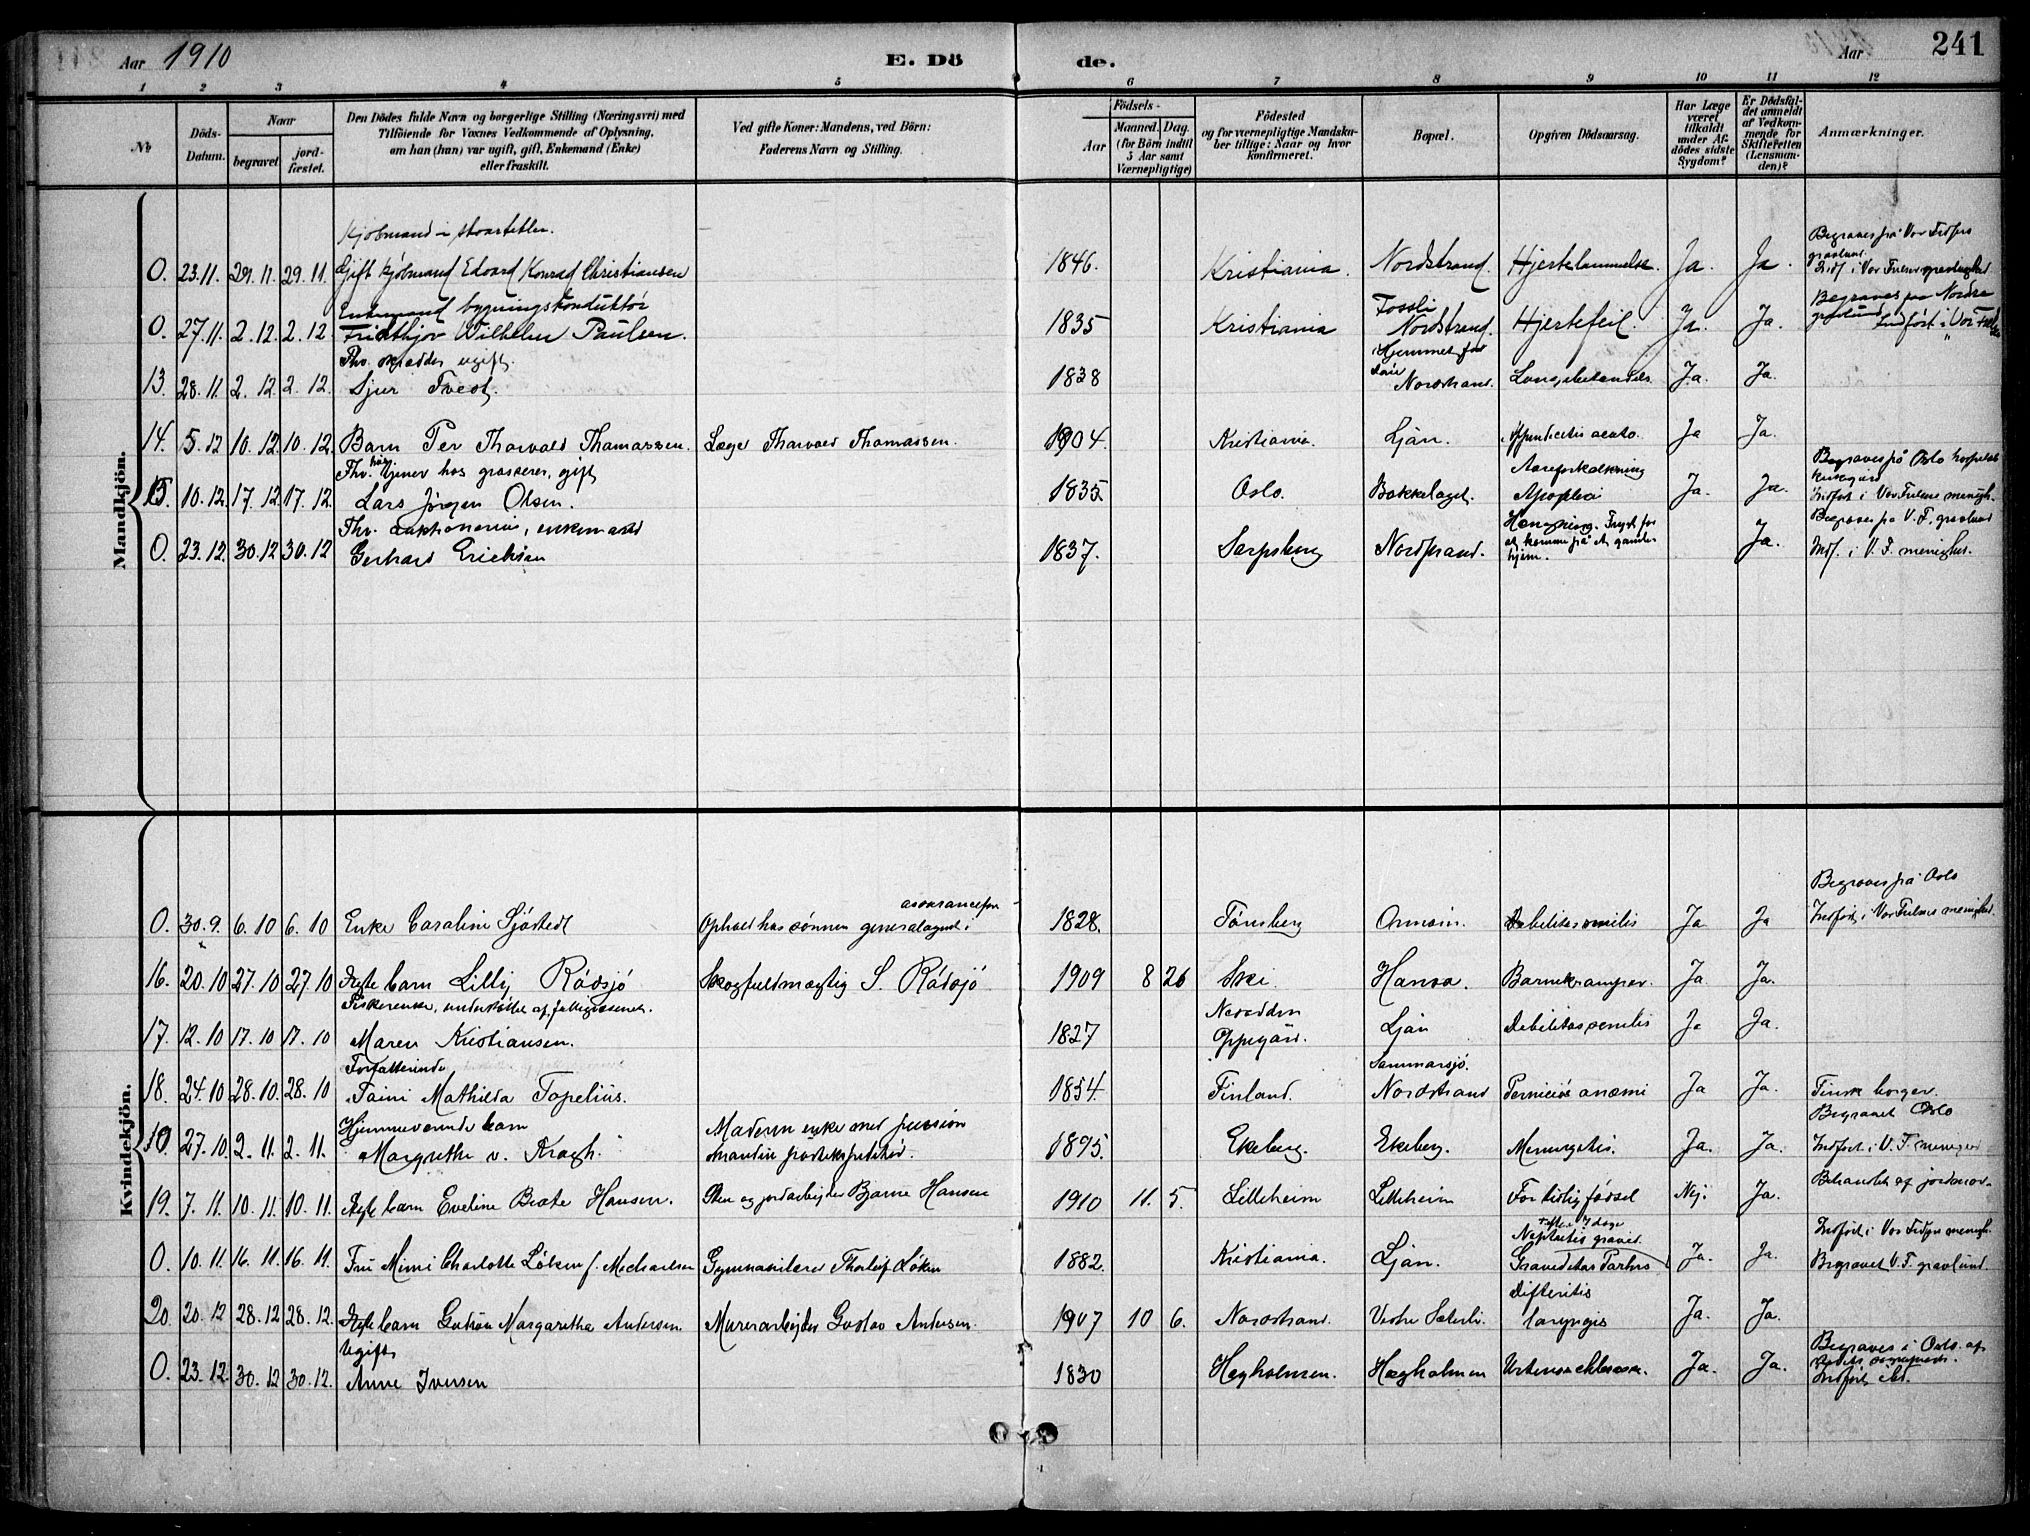 Aar 1910 E. Dö de. Aar 241
1 2 3 4 5 6 7 8 9 10 11 12
No Döds-Datum. Naar begravet jordfæstet. Den Dödes fulde Navn og borgerlige Stilling (Næringsvei) med Tilföiende for Voxnes Vedkommende af Oplysning, om han (hun) var ugift, gift, Enkemand (Enke) eller fraskilt. Ved gifte Koner: Mandens, ved Börn: Faderens Navn og Stilling. Födsels- Aar Maaned. Dag. (for Börn indtil 5 Aar samt Værnepligtige) Födested og for værnepligtige Mandskaber tillige: Naar og hvor konfirmeret. Bopæl. Opgiven Dödsaarsag. Har Læge været tilkaldt under Afdödes sidste Sygdom? Er Dödsfaldet anmeldt af Vedkommende for Skifteretten (Lensmanden)? Anmærkninger.
Mandkjön.
Kjøbmand i
O. 23.11. 29.11. 29.11. Gift kjøbmand Edvard Konrad Christiansen 1846. Kristiania. Nordstrand. Hjertelammelse. Ja. Ja. Begraves på Vor Frelsers gravlund. Indf. i Vor Frelsers menighed.
Enkemand bygningskonduktør
O. 27.11. 2.12. 2.12 Fridthjov Wilhelm Paulsen. 1835 Kristiania Fossli Nordstrand. Hjertefeil. Ja. Ja. Begraves paa Nordre gravlund Indført i Vor
Fhv. skrædder ugift.
13. 28.11. 2.12. 2.12. Sjur Tvedt. 1838 Hjemmet for døve Nordstrand. Lungebetændels. Ja. Ja.
14. 5.12 10.12. 10.12. Barn Per Thorvald Thomassen. Læge Thorvald Thomassen. 1904. Kristiania. Ljan. Appendicitis acuta. Ja Ja.
Fhv. tjener hos grosserer, gift
15. 10.12. 17.12. 17.12. Lars Jørgen Olsen. 1835. Oslo. Bækkelaget. Aareforkalkning Apoplexi Ja. Ja. Begraves på Oslo hospitals kirkegård Indført i Vor Frelsers menigh.
Fhv. auktionarius, enkemand
O. 23.12. 30.12 30.12 Gerhard Ericksen 1837. Sarpsborg Nordstrand. Hængning. Frygt for at komme på et gamlehjem. Ja. Begraves på V. F. gravlund Indf. i V. F. menighed.
Kvindekjön.
O. 30.9. 6.10 6.10 Enke Caroline Sjøstedt Ophold hos sønnen generalagent i assuranceforr 1828. Tønsberg Ormøen. Debilitas senilis Ja Ja Begraves på Oslo Indført i Vor Frelsers menighed.
16. 20.10 27.10 27.10 Ægte barn Lilly Rådsjø Skogfuldmægtig S. Rådsjø 1909 8 26 Ski. Hauva. Barnekramper. Ja Ja.
Fiskerenke, understøttet af fattigvæsenet.
17. 12.10 17.10 17.10 Maren Kristiansen. 1827 Nesodden Oppegård. Ljan Debilitas senilis Ja Ja.
Forfatterinde
18. 24.10 28.10. 28.10 Taini Mathilda Topelius. 1854. Finland. Sommarsjö. Nordstrand Perniciøs anæmi Ja Ja. Finsk borger.
Hjemmeværende barn
O 27.10. 2.11. 2.11. Margrethe v. Krogh. Moderen enke med pension Manden postekspeditør. 1895. Ekeberg. Ekeberg. Meningitis. Ja. Ja. Begravet Oslo Indført i V. F. menighed
19. 7.11. 10.11. 10.11. Ægte barn Eveline Beate Hansen. Sten og jordarbejder Bjarne Hansen 1910 11. 5. Lilleheim Lilleheim For tidlig fødsel Nej. Ja. Behandlet af jordmor
O. 10.11. 16.11. 16.11. Fru Mimi Charlotte Løken f. Michaelsen Gymnasielærer Thorleif Løken 1882. Kristiania. Ljan. Nephritis gravid. Graviditas Partus Ja. Ja. Indført i Vor Frelsers menigh. Begravet V. F. gravlund.
20. 20.12 28.12 28.12. Ægte barn Gudrun Margaretha Andersen. Murerarbejder Gustav Andersen. 1907 10 6. Nordstrand. Vestre Sæterli. Difteritis laryngis Ja. Ja.
Ugift
O. 23.12. 30.12 30.12. Anne Iversen 1830 Hegholmen. Hegholmen Ja. Ja. Begraves i Oslo af Indført ibd.